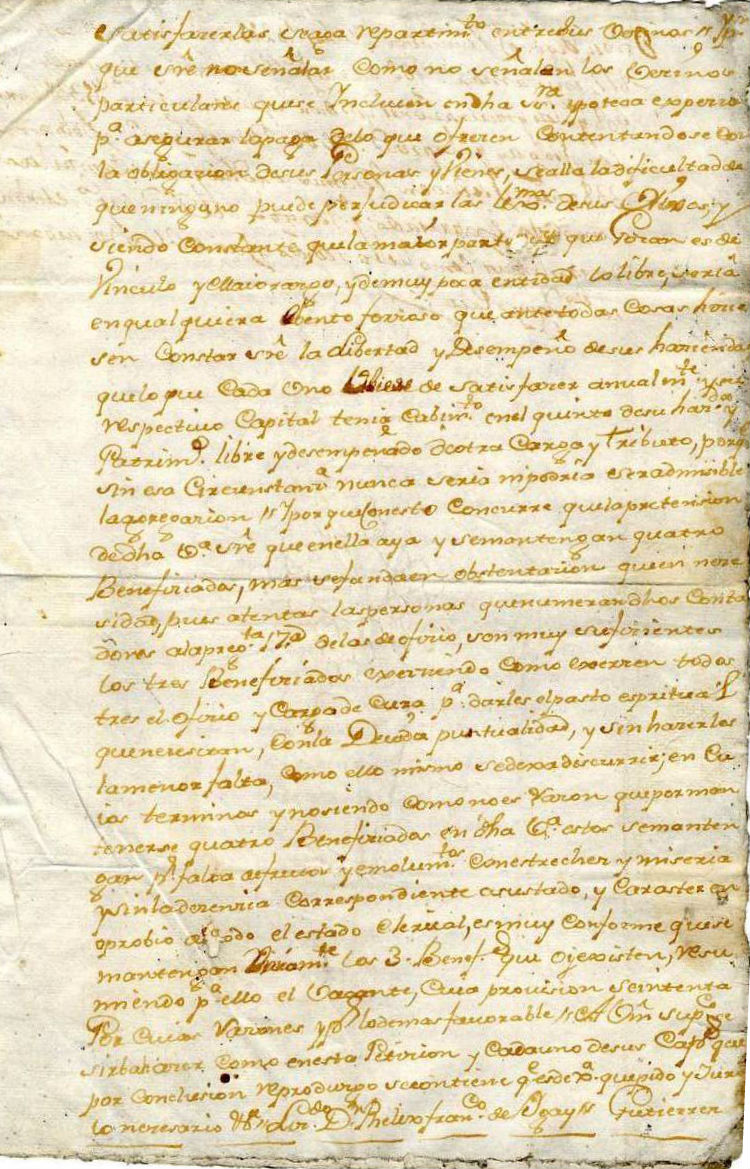 satisfazerlas se aga repartim.to entre dhos Vezinos
que sre no señalar como no señalan los Vezinos
particulares que se Incluien en dha ypoteca
p.a asegurar la paga de lo que ofrezen Contentandose con
la obligazion de sus Personas y Vienes, se alla la dificultad de
que ninguno puede perjudicar las de sus y
siendo Constante que la maior parte que Gozan es de
Vinculo y Maiorazgo, y de muy poca entidad lo libre, seria
en qualquiera Ebento forzoso que ante todas Cosas hizie
sen Constar sre la Livertad y Desempeño de sus haziendas
que lo que Cada Uno Ubiere de satisfazer anualm.te y su
respectivo Capital tenia Cabim.to en el quinto de su haz.da y
Patrim.o libre y desempeñado de otra Carga y tributo, porq
sin esa Circunstanz.a nunca seria ni podria ser admisible
la agregazion y porque Con esto Concurre que la pretension
de dha V.a sre que en ella aya y se mantengan quatro
Benefiziados, mas se funda en obstentazion que en neze
sidad, pues atentas las personas que numeran dhos Conta
dores a la preg.ta 17.a de las de ofizio, son muy sufizientes
los tres Benefiziados exerziendo como exerzen todos
tres el ofizio y Carga de Cura p.a darles el pasto espritual
que nezesitan, con la Devida puntualidad, y sin hazerles
la menor falta, como ello mismo se dexa discurrir; en Cu
ios terminos y no siendo como no es razon que por man
tenerse quatro Benefiziados en dha V.a estos se manten
gan p.r falta de frutos y emolum.tos con estrechez y miseria
y sin la dezenzia correspondiente a su stado, y Caracter en
oprobio de todo el estado Clerical, es muy Conforme que se
mantengan Unicam.te los 3. Benef.dos que oi existen, resu
miendo p.a ello el Vacante, Cuia provision se intenta
Por cuias razones y p.r lo demas favorable A Vm sup.co se
sirba hazer como en esta Petizion y Cada uno de sus Cap.os que
por conclusion reproduzgo se contiene q.e es de Jus.a que pido y Juro
lo nezesario &.a Liz.do D.n Phelix fran.co de Gutierrez